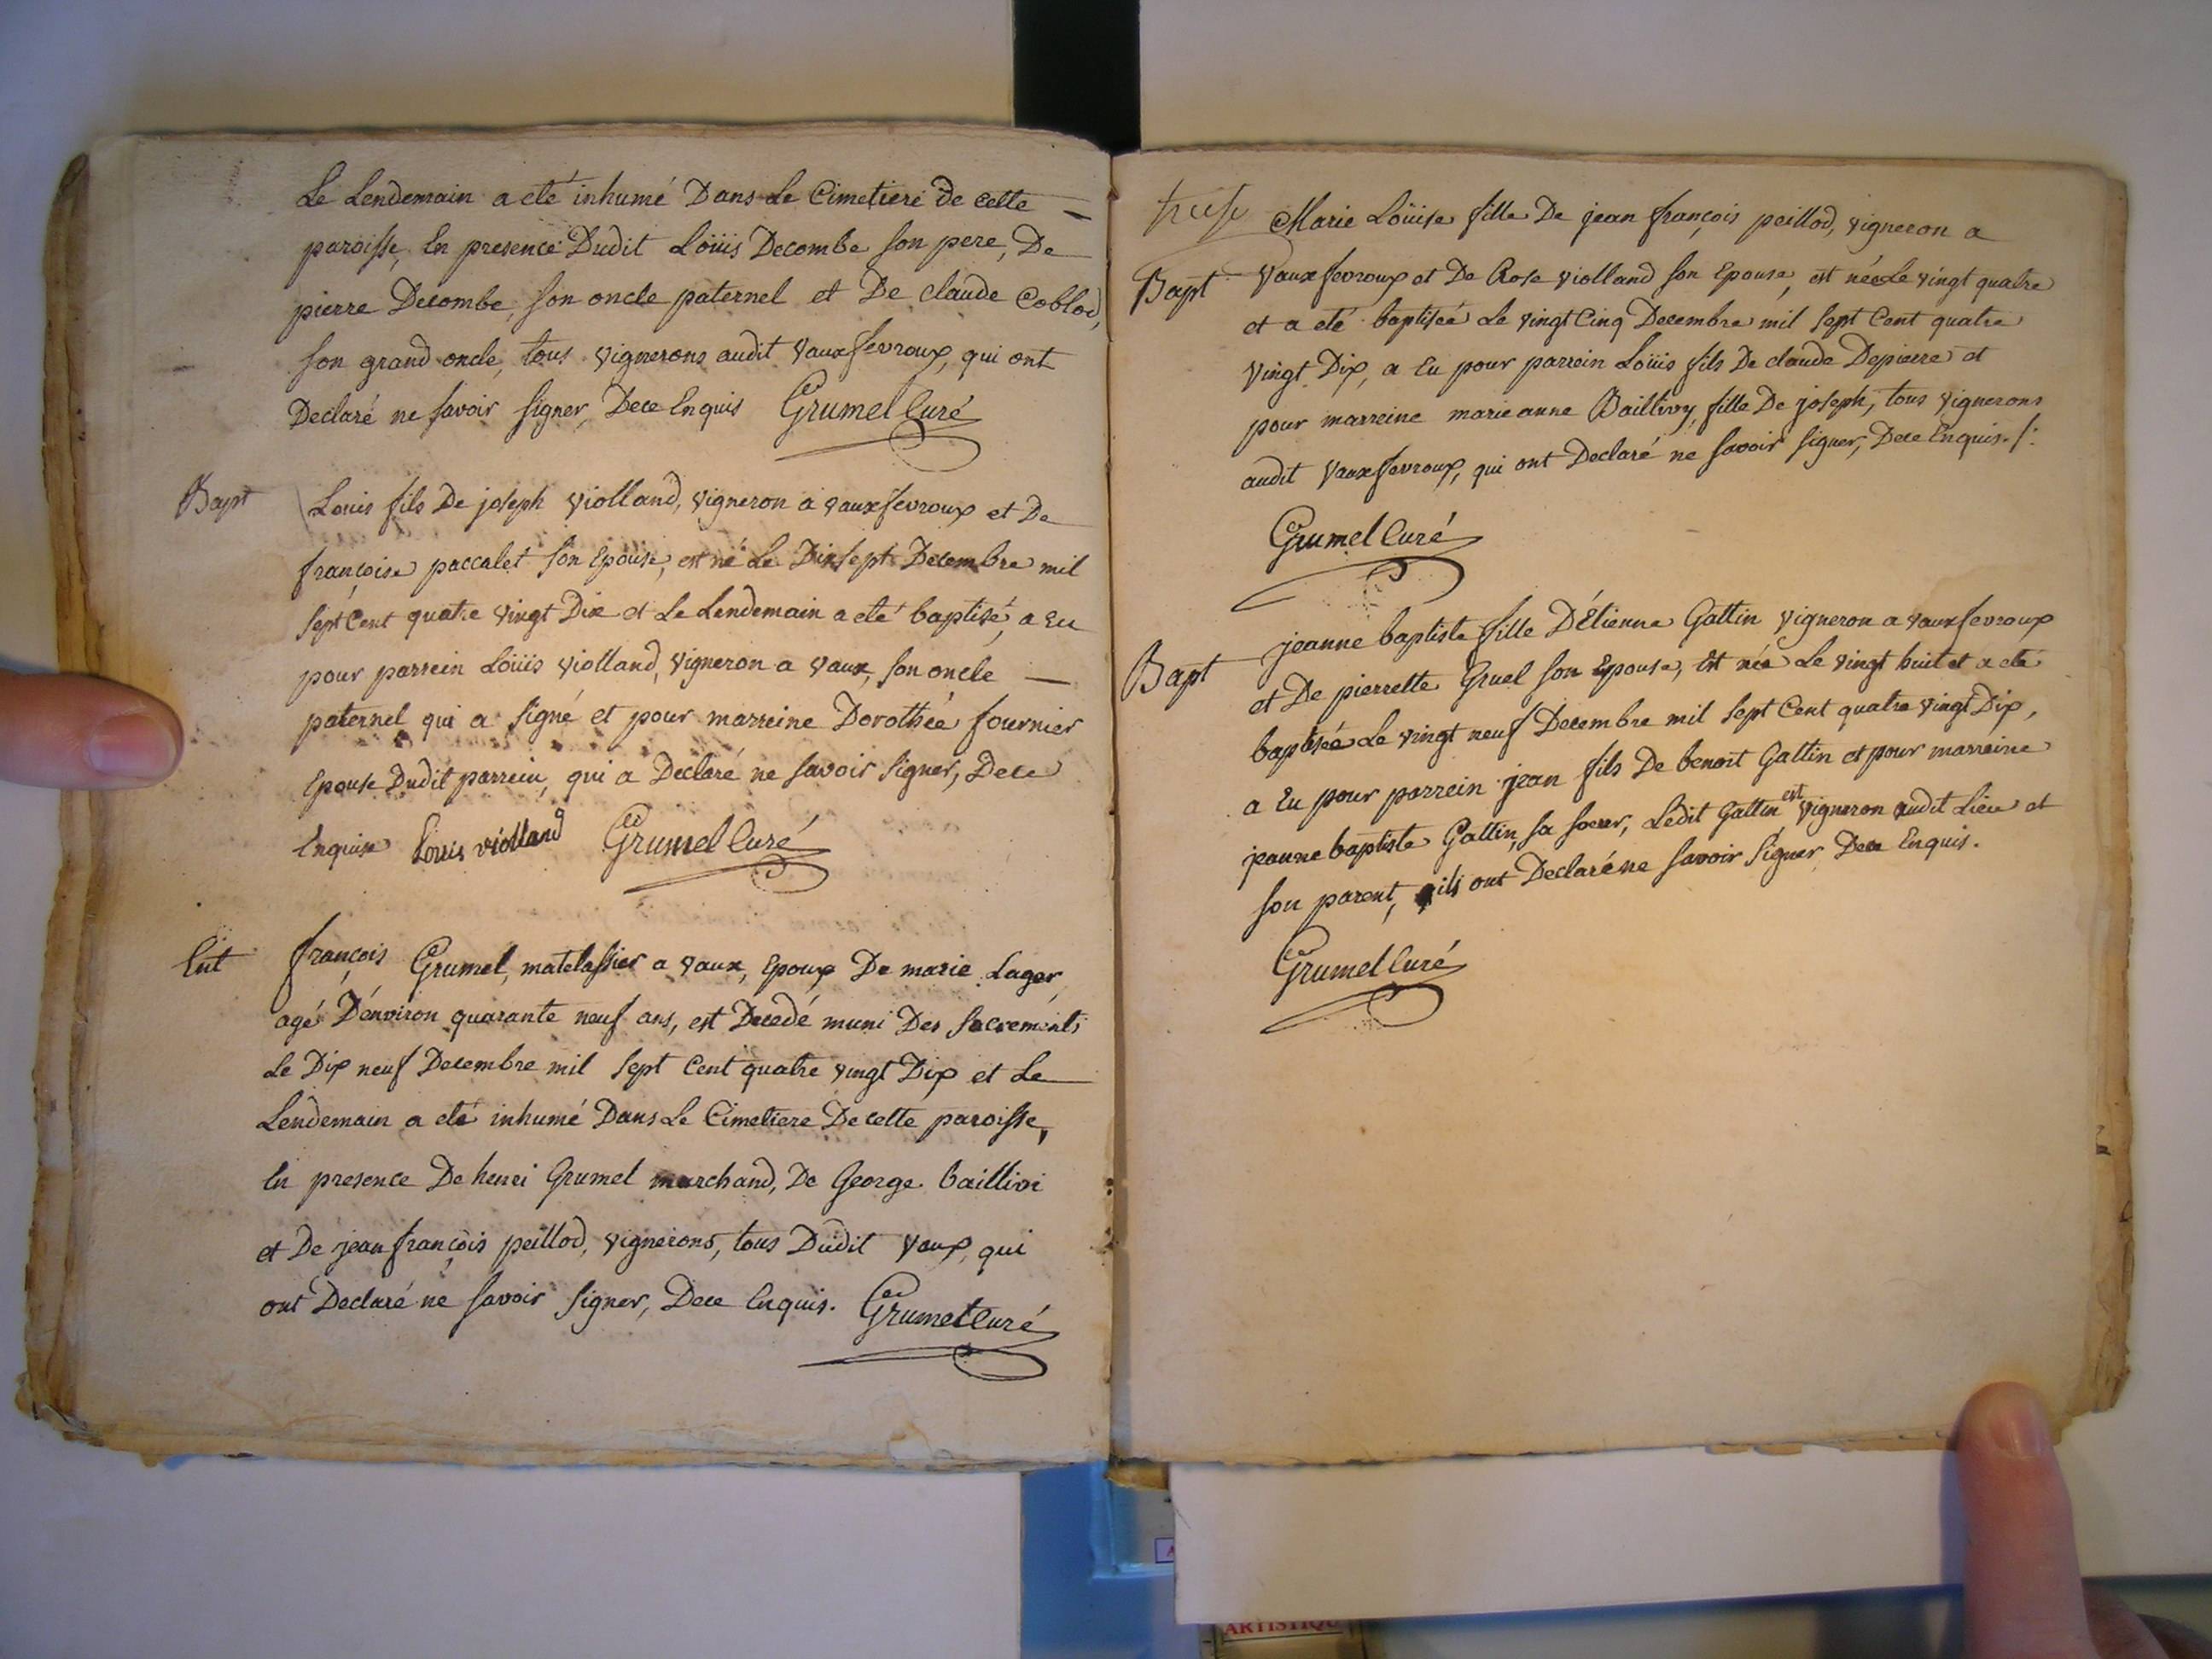 Le Lendemain a eté inhumé Dans Le Cimetiere de cette
paroisse, En presence Dudit Loüis Decombe son pere, De
pierre Decombe, son oncle paternel et De claude Coblod,
son grand oncle, tous vignerons audit vauxfevroux, qui ont
Declaré ne savoir signer, Dece Enquis Grumel Curé
Bapt Louis fils De joseph violland, vigneron a vauxfevroux et De
françoise paccalet son Epouse, est né Le Dixsept Decembre mil
sept Cent quatre vingt Dix et Le Lendemain a eté baptisé, a Eu
pour parrein Loüis violland, vigneron a vaux, son oncle
paternel qui a signé et pour marreine Dorothée fournier
Epouse Dudit parrein, qui a Declaré ne savoir signer, Dece
Enquise Louis violland Grumel Curé
Ent françois Grumel, matelassier a vaux, Epoux De marie Lager,
agé D'environ quarante neuf ans, est Decedé muni Des sacrements
Le Dix neuf Decembre mil sept Cent quatre vingt Dix et Le
Lendemain a eté inhumé Dans Le Cimetiere De cette paroisse,
En presence De henri Grumel marchand, De George baillivi
et De jean françois peillod, vignerons, tous Dudit vaux, qui
ont Declaré ne savoir signer, Dece Enquis. Grumel Curé
Marie Loüise fille De jean françois peillod, vigneron a
Bapt vauxfevroux et De Rose violland son Epouse, est née Le vingt quatre
et a eté baptisée Le vingt Cinq Decembre mil sept Cent quatre
vingt Dix, a Eu pour parrein Loüis fils De claude Depierre et
pour marreine marie anne Baillivy, fille De joseph, tous vignerons
audit vauxfevroux, qui ont Declaré ne savoir signer, Dece Enquis./:
Grumel Curé
jeanne baptiste fille D'Etienne Gattin vigneron a vauxfevroux
Bapt et De pierrette Gruel son Epouse, Est née Le vingt huit et a eté
baptisée Le vingt neuf Decembre mil sept Cent quatre vingt Dix,
a Eu pour parrein jean fils De benoit Gattin et pour marreine
jeanne baptiste Gattin, sa soeur, Ledit Gattin est vigneron audit Lieu et
son parent, ils ont Declaré ne savoir signer, Dece Enquis.
Grumel Curé
ARTISTIQU